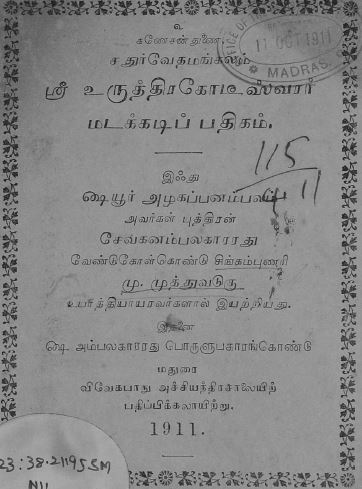 உ
கணேசன் துணை.
சதுர்வேதமங்கலம்
ஸ்ரீ உருத்திரகோடீஸ்வரர்
மடக்கடிப் பதிகம்.
இஃது
ஷையூர் அழகப்பனம்பல
அவர்கள் புத்திரன்
சேவகனம்பலகாரரது
வேண்டுகோள்கொண்டு சிங்கம்புணரி
மு. முத்துவடுகு
உபாத்தியாயரவர்களால் இயற்றியது.
இதனை
ஷை அம்பலகாரரது பொருளுபகாரங்கொண்டு
மதுரை
விவேகபாநு அச்சியந்திரசாலையிற்
பதிப்பிக்கலாயிற்று.
1911.
OFFICE OF THE
11 OCT 1911
MADRAS.
115
11
23:38.21195SM
N11